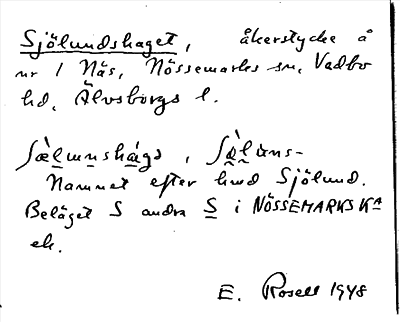 Sjölundshaget, åkerstycke å
nr 1 Näs, Nössemarks sn, Vadbo
hd, Älvsborgs l.
Namnet efter hmd Sjölund.
Beläget S andra S i NÖSSEMARKS KA
ek.
E. Rosell 1948